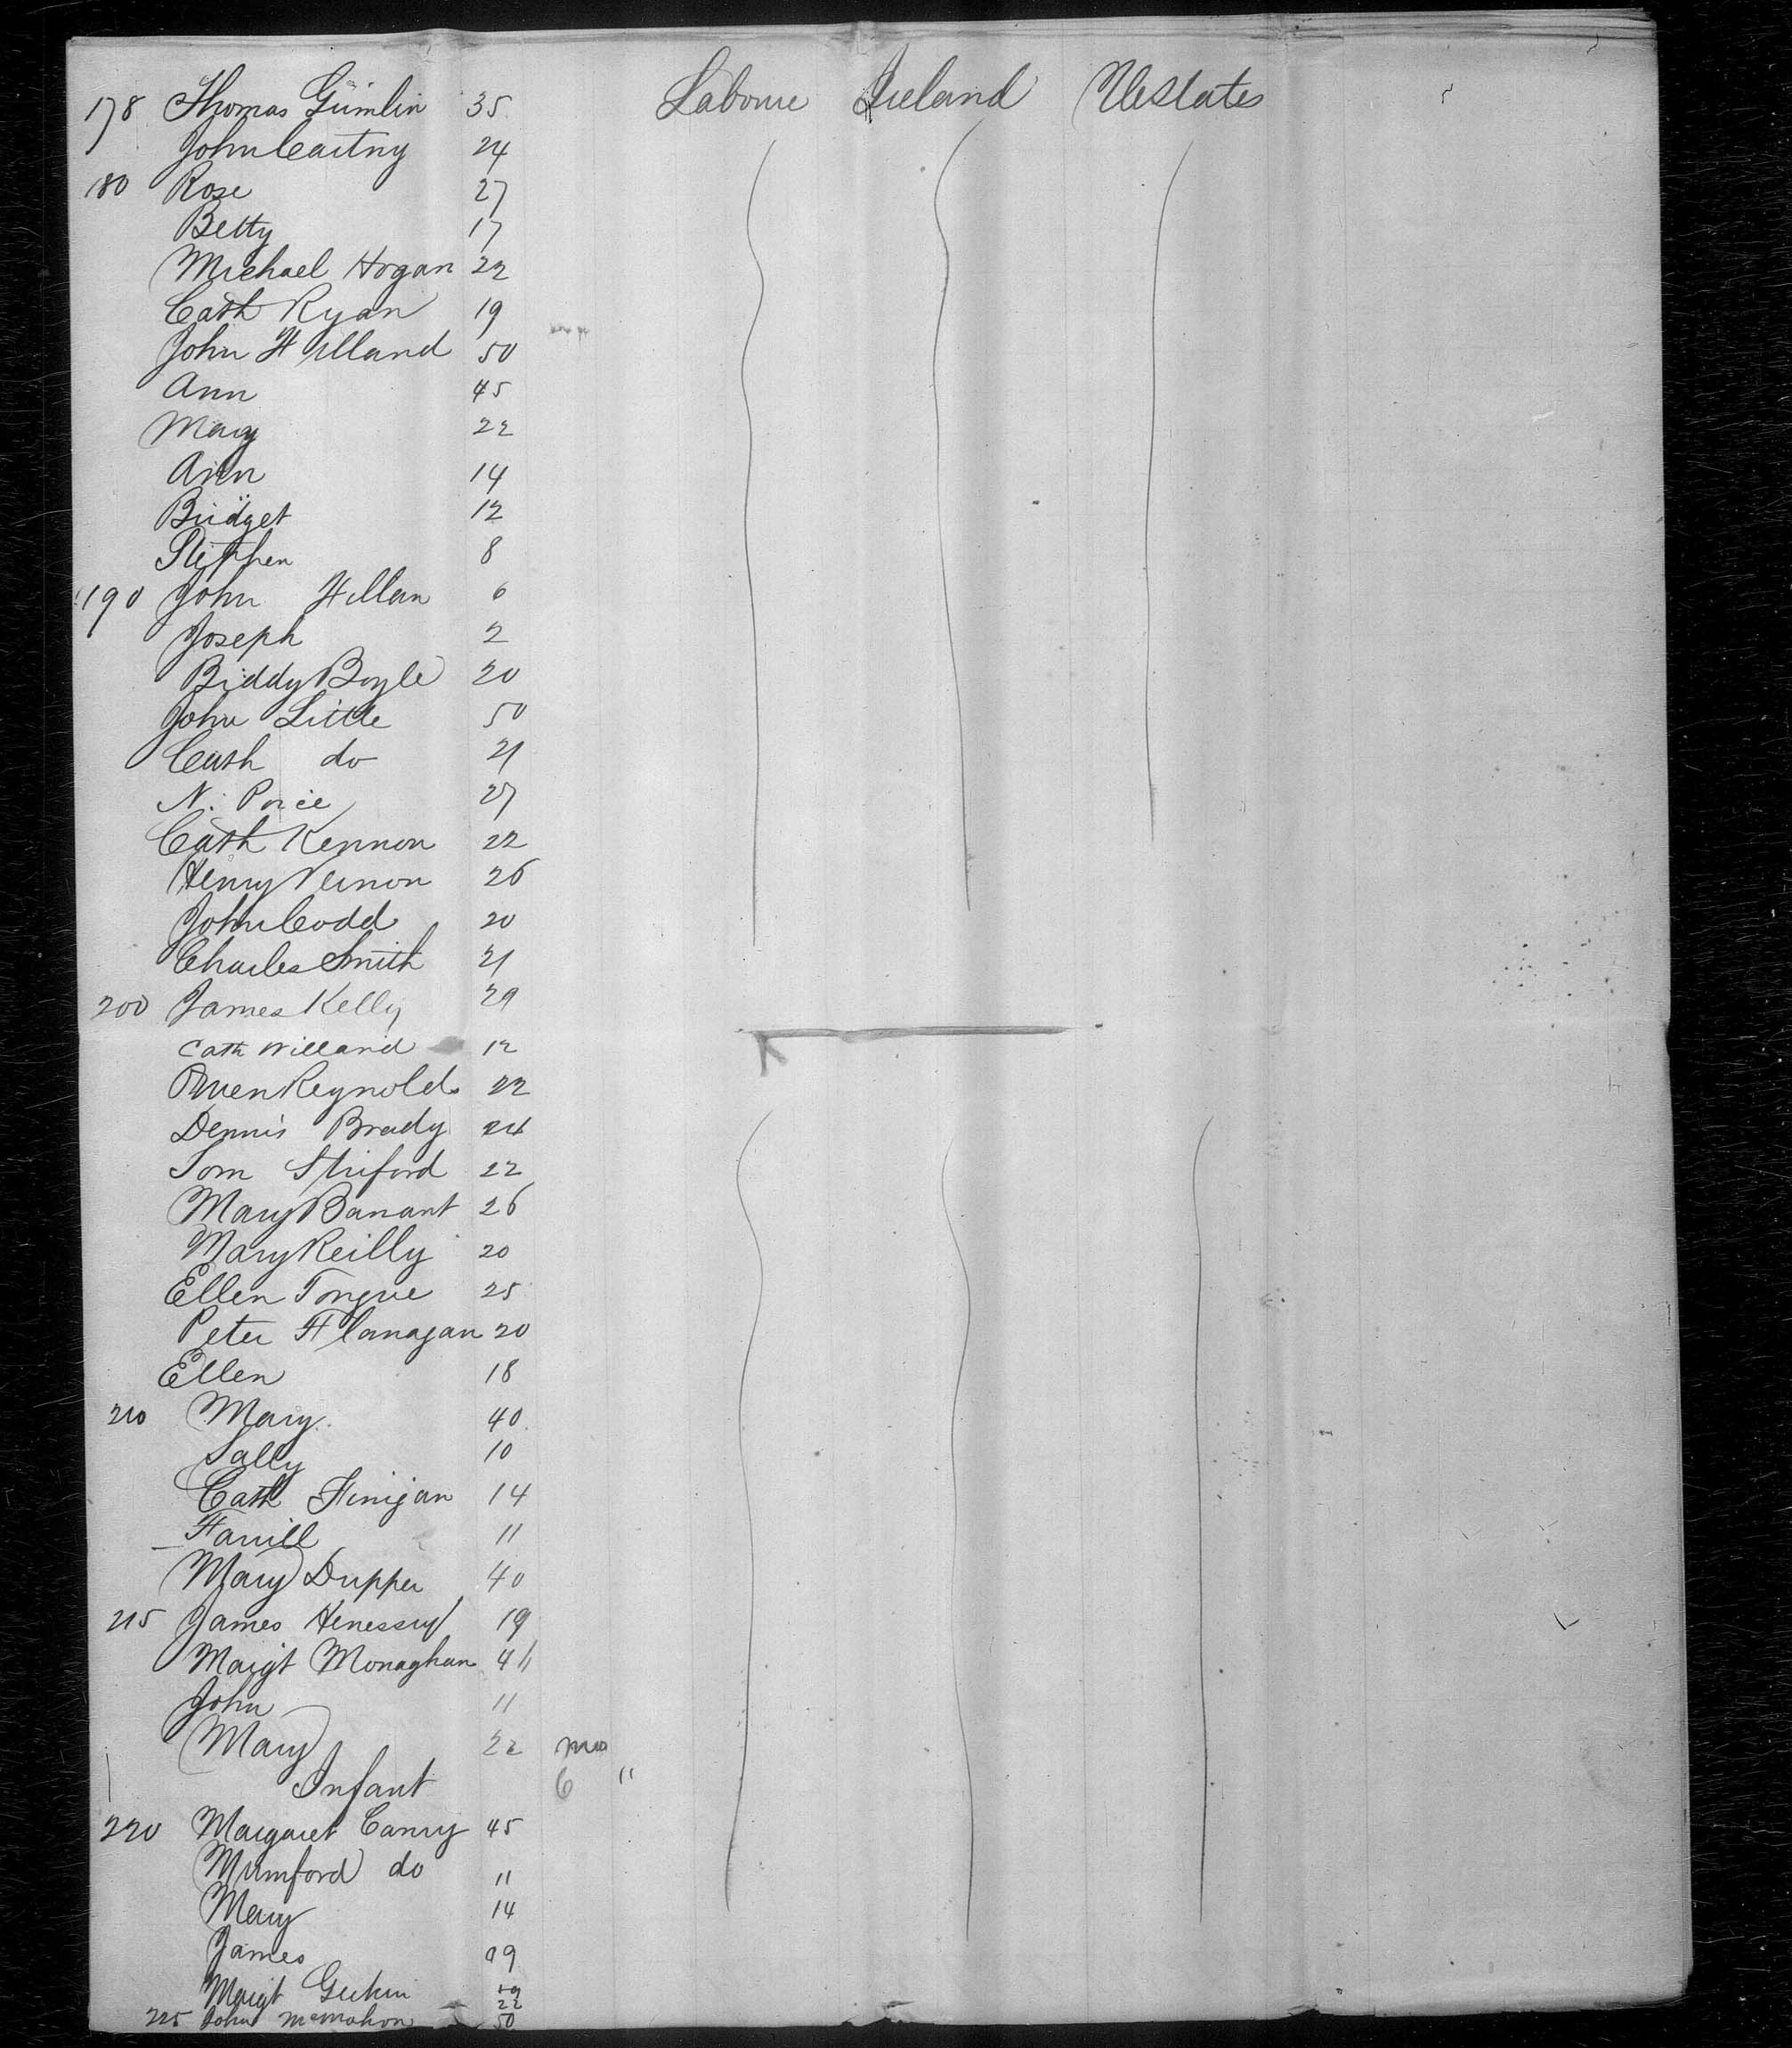 178 Thomas Gumlin 35 Laboure Ireland UeStates
John Caitny 24
180 Rose 27
Betty 17
Michael Hogan 22
Cath Ryan 19
John Hilland 50
Ann 45
Mary 22
Ann 14
Bridget 12
Stephen 8
190 John Hillan 6
Joseph 2
Biddy Boyle 20
John Little 50
Cath do 21
N. Price 27
Cath Kennon 22
Henry Vernon 26
John Codd 20
Charles Smith 21
200 James Kelly 29
Cath Willand 12
Owen Reynolds 22
Dennis Brady 24
Tom 22
Mary Banant 26
Mary Reilly 20
Ellen Tongue 25
Peter Flanagan 20
Ellen 18
210 Mary 40
Sally 10
Cath Finigan 14
Farrill 11
Mary Dupper 40
215 James Henessuy 19
Margt Monaghan
John 11
Mary 22 mo
Infant 6 "
220 Margaret Canry 45
Mumford do 11
Mary 14
James 09
Margt 22
225 John McMahon 50